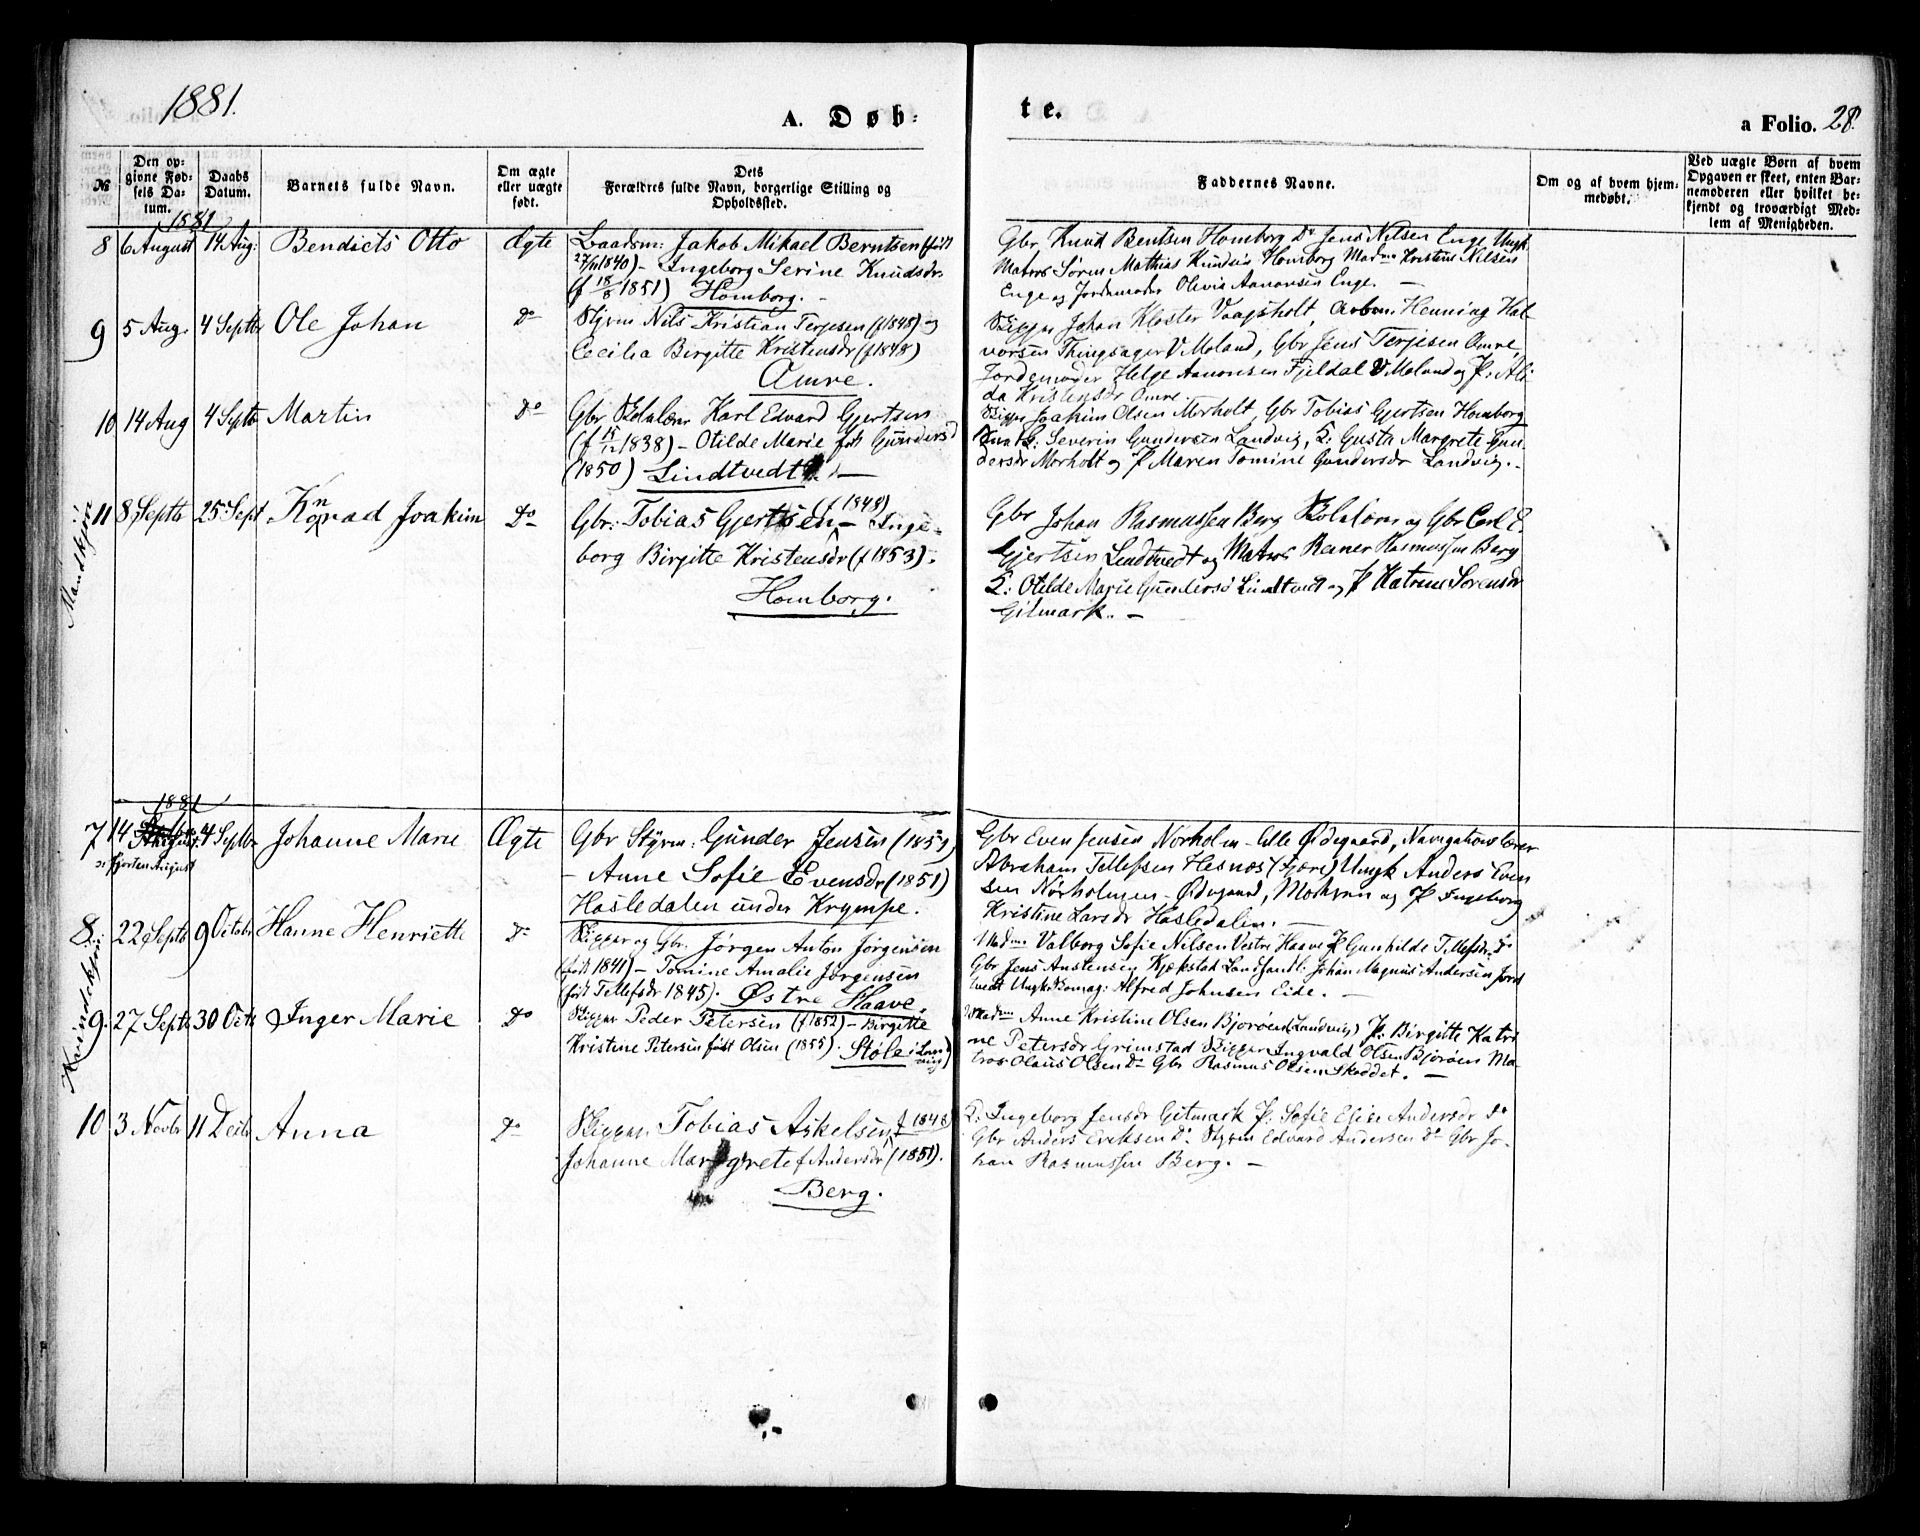 1881.
A. Døb-
te.
a Folio. 28.
№
Den op-
givne Fød-
sels Da-
tum.
Daabs
Datum.
Barnets fulde Navn.
Om ægte
eller uægte
født.
Dets
Forældres fulde Navn, borgerlige Stilling og
Opholdssted.
Faddernes Navne.
Om og af hvem hjem-
medøbt.
Ved uægte Børn af hvem
Opgaven er skeet, enten Bar-
nemoderen eller hvilket be-
kjendt og troværdigt Med-
lem af Menigheden.
Mandkjøn
1881
8 6 August 14 Aug: Bendicts Otto Ægte
Baadsm: Jakob Mikael Berntsen (født
27/11 1840) – Ingeborg Serine Knudsdr:
(f 18/8 1851) Homborg. –
Gbr Knud Bentsen Homborg Do Jens Nilsen Enge Ungk
Matros Søren Mathias Knudsen Homborg Madme Kristine Nilsen
Enge og Jordemoder Olevia Aanonsen Enge. –
9 5 Aug. 4 Septbr Ole Johan Do
Styrm Nils Kristian Terjesen (f 1848) og
Cecilia Birgitte Kristensdr (f 1848)
Omre.
Skipper Johan Kloster Vaagsholt, Arbm. Henning Hal-
vorsen Thingsager V Moland, Gbr Jens Terjesen Omre,
Jordemoder Helge Aanonsen Fjeldal V Moland og P: Ali-
da Kristensdr Omre.
10 14 Aug 4 Septb Martin Do
Gbr Skolelærer Karl Edvard Gjertsen
(f 15/12 1838) – Otilde Marie født Gundersd
(1850) Lindtvedt. –
Skipper Joakim Olsen Morholt, Gbr Tobias Gjertsen Homborg
Severin Gundersen Landvig, K: Gusta Margrete Gun-
dersdr Morholt og P Maren Tomine Gundersdr Landvig. –
11 8 Septb 25 Sept Konrad Joakim Do
Gbr: Tobias Gjertsen (f 1848) – Inge-
borg Birgitte Kristensdr (f 1853).
Homborg.
Gbr Johan Rasmussen Berg Skolelærer og Gbr Carl E
Gjertsen Lindtvedt og Matros Reiner Rasmussen Berg
K: Otilde Marie Gundersd Lindtvedt og P Katrine Sørensdr
Gitmark. –
Kvindekjøn
1881
7 14 August 4 Septbr Johanne Marie Ægte
ɔ: fjorten August
Gbr Styrm: Gunder Jensen (1859)
– Anne Sofie Evensdr (1851)
Hasledalen under Krympe.
Gbr Even Jensen Norholm – Lille Ødegaard, Navigationslærer
Abraham Tellefsen Hesnæs (Fjære) Ungk Anders Even
sen Nørholmen – Ødegaard, og P Ingeborg
Kristine Larsdr Hasledalen. –
8. 22 Septb 9 Octobr Hanne Henriette Do
Skipper og Gbr. Jørgen Anton Jørgensen
(født 1841) – Tomine Amalie Jørgensen
(født Tellefsdr 1845). Østre Haave.
Madme Valborg Sofie Nilsen Vestre Haave P Gunhilde Tellefsdr: Do
Gbr Jens Austensen Kjekstad Landhandl: Johan Magnus Andersen Jord
tvedt Ungk Alfred Johnsen Eide. –
9. 27 Septb 30 Octb Inger Marie Do
Skipper Peder Petersen (f 1852) – Birgitte
Kristine Petersen født Olsen (1855). Støle i Land-
vig)
Madme Anne Kristine Olsen Bjorøen (Landvig) P: Birgitte Katri
ne Petersdr Grimstad Skipper Ingvald Olsen Bjorøen Ma-
tros Olaus Olsen Do Gbr Rasmus Olsen Skoddet. –
10 3 Novbr 11 Decbr Anna Do
Skipper Tobias Askelsen f 1848
Johanne Margrete f Andersdr (1851).
Berg.
K: Ingeborg Jensdr Gitmark P: Sofie Elise Andersdr Do
Gbr Anders Eriksen Do Styrm Edvard Andersen Do Gbr Jo-
han Rasmussen Berg. –